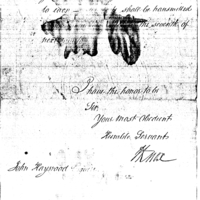 to every shall be transmitted
the seventh of
I have the honor to be
Sir
Your most Obedient
Humble Servant
John Haywood